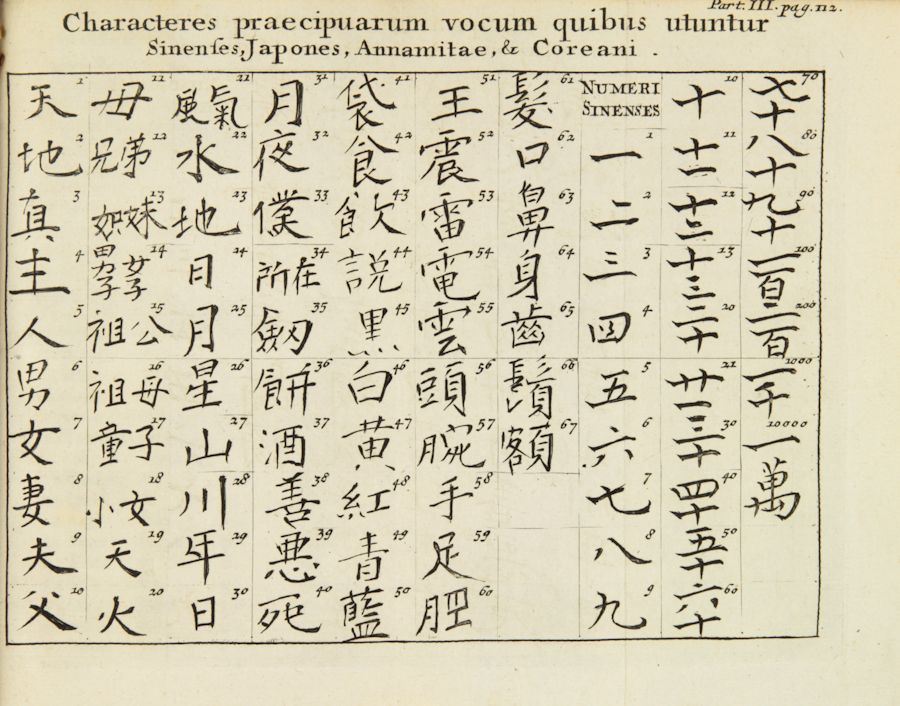 Part. III. pag. 112.
Characteres praecipuarum vocum quibus utuntur
Sinenses, Japones, Annamitae, & Coreani.
天 1
地 2
真 3
主 4
人 5
男 6
女 7
妻 8
夫 9
父 10
母 11
兄弟 12
妹 13
男子 女子 14
祖公 15
祖母 16
童子 17
小女 18
天 19
火 20
風氣 21
水 22
地 23
日 24
月 25
星 26
山 27
川 28
年 29
日 30
月 31
夜 32
僕 33
所在 34
劔 35
餅 36
酒 37
善 38
悪 39
死 40
袋 41
食 42
飲 43
説 44
黒 45
白 46
黄 47
紅 48
青 49
藍 50
王 51
震 52
雷 53
電 54
雲 55
頭 56
腕 57
手 58
足 59
肥 60
髪 61
口 62
鼻 63
身 64
齒 65
鬚 66
額 67
NUMERI
SINENSES
一 1
二 2
三 3
四 4
五 5
六 6
七 7
八 8
九 9
十 10
十一 11
十二 12
十三 13
二十 20
廿一 21
三十 30
四十 40
五十 50
六十 60
七十 70
八十 80
九十 90
一百 100
二百 200
一千 1000
一萬 10000